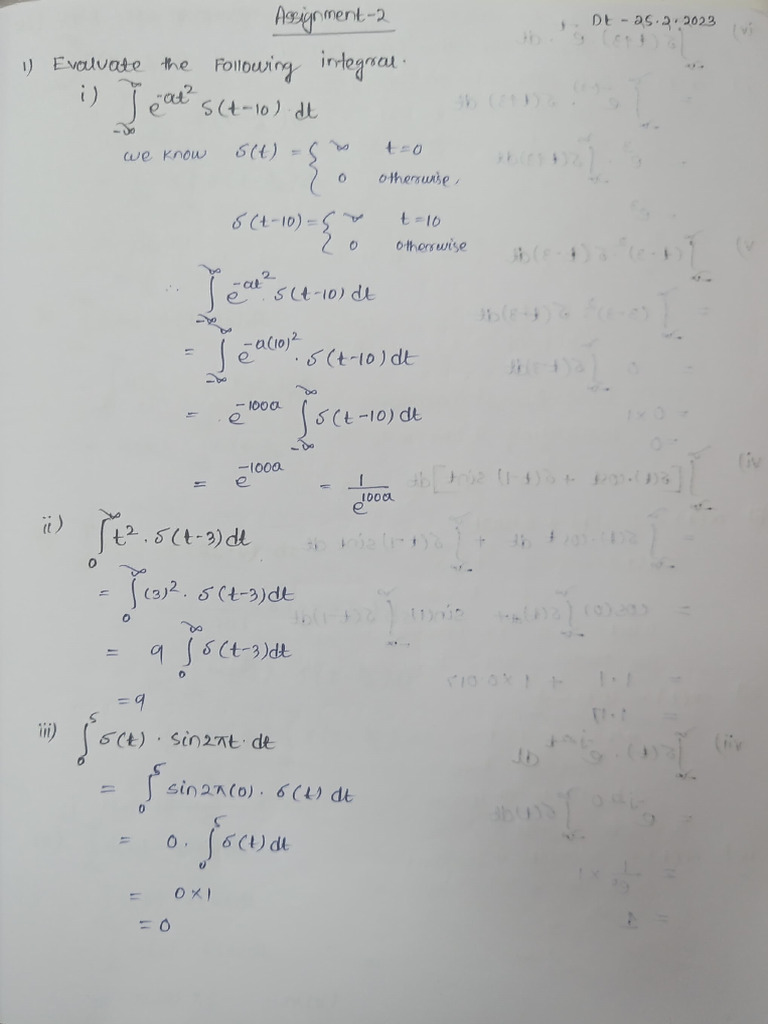 Assignment-2
Dt - 25.2.2023
1) Evaluate the Following integral.
i) ∫_{-∞}^{∞} e^{-at^2} δ(t-10) . dt
we know δ(t) = { ∞ t=0
{ 0 otherwise,
δ(t-10) = { ∞ t=10
{ 0 otherwise
∴ ∫_{-∞}^{∞} e^{-at^2} . δ(t-10) dt
= ∫_{-∞}^{∞} e^{-a(10)^2} . δ(t-10) dt
= e^{-100a} ∫_{-∞}^{∞} δ(t-10) dt
= e^{-100a} = 1/e^{100a}
ii) ∫_0^∞ t^2 . δ(t-3) dt
= ∫_0^∞ (3)^2 . δ(t-3) dt
= 9 ∫_0^∞ δ(t-3) dt
= 9
iii) ∫_0^5 δ(t) . sin2πt . dt
= ∫_0^5 sin2π(0) . δ(t) dt
= 0 . ∫_0^5 δ(t) dt
= 0 × 1
= 0